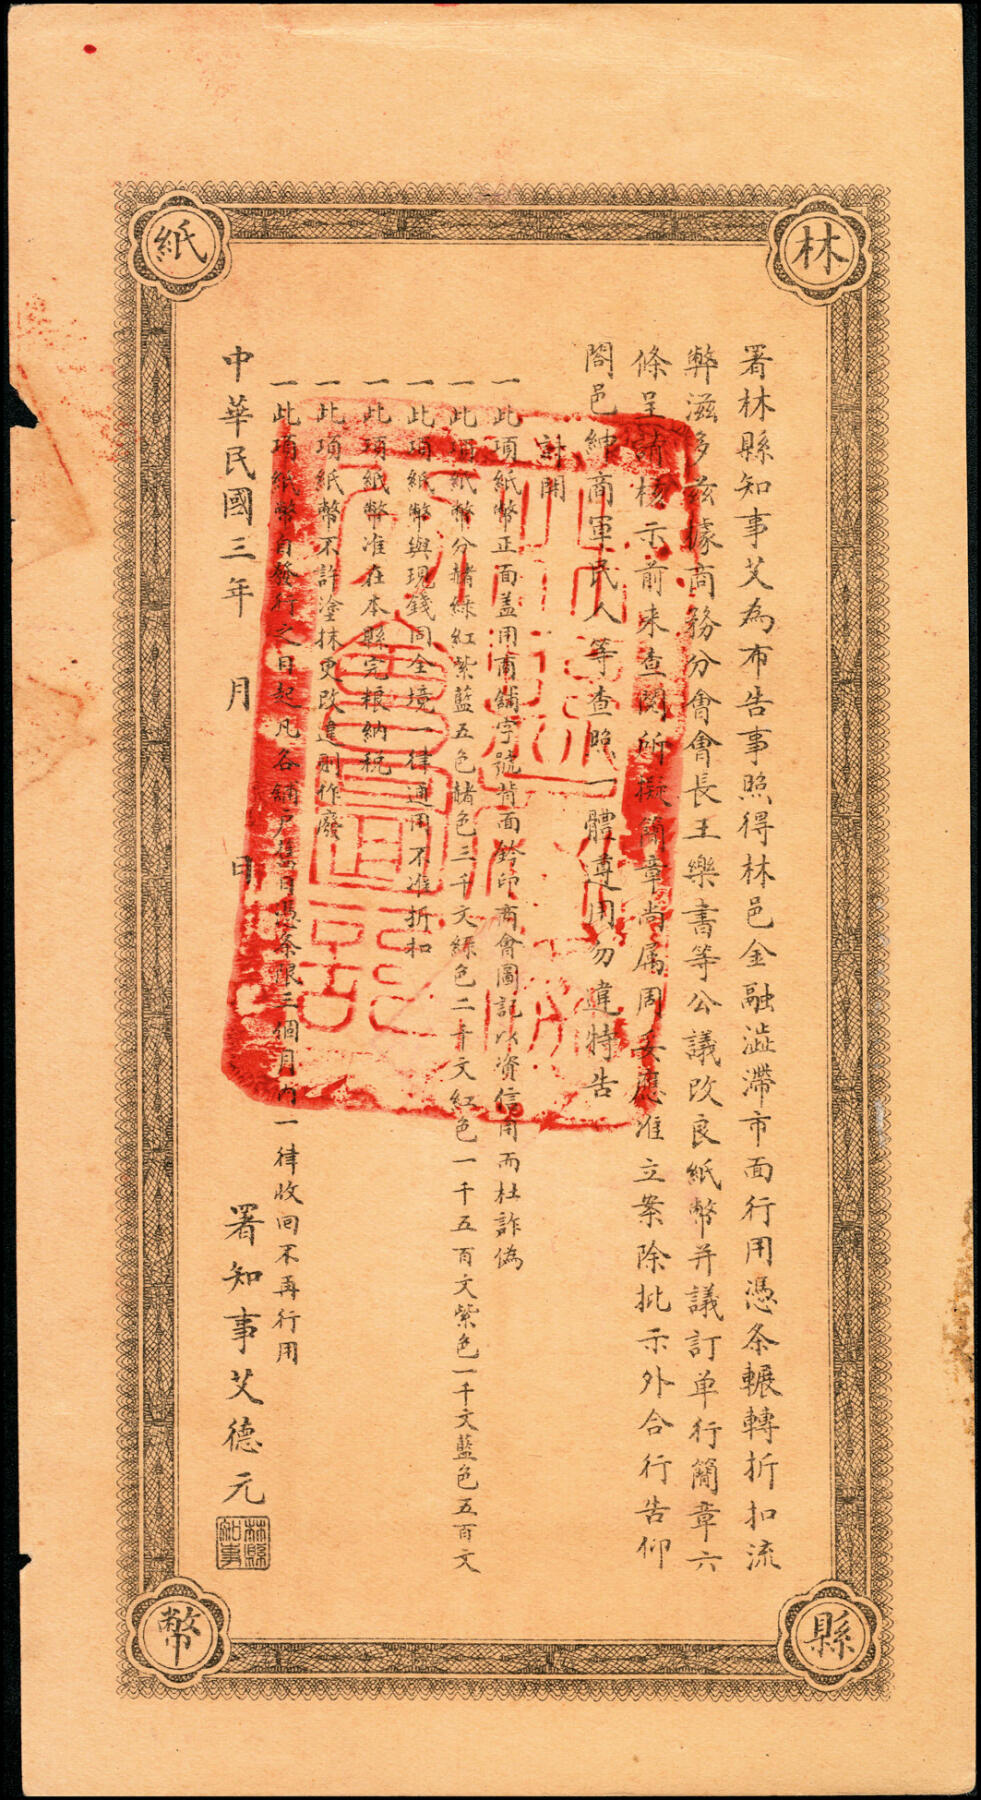 林
縣
紙
幣
署林縣知事艾為布告事照得林邑金融澁滯市面行用憑条輾轉折扣流
弊滋多茲據商務分會會長王樂書等公議改良紙幣并議訂单行簡章六
條呈請核示前来查閱所擬簡章尚属周妥應准立案除批示外合行告仰
閤邑紳商軍民人等查照一體遵用勿違特告
計開
一此項紙幣正面盖用商舖字號背面鈐印商會圖記以資信用而杜詐偽
一此項紙幣分赭綠紅紫藍五色赭色三千文綠色二千文紅色一千五百文紫色一千文藍色五百文
一此項紙幣與現錢同全境一律通用不准折扣
一此項紙幣准在本縣完粮納稅
一此項紙幣不許塗抹更改違則作廢
一此項紙幣自發行之日起凡各舖戶舊日憑条限三個月内一律收回不再行用
中華民國三年 月 日 署知事艾德元
林縣知事